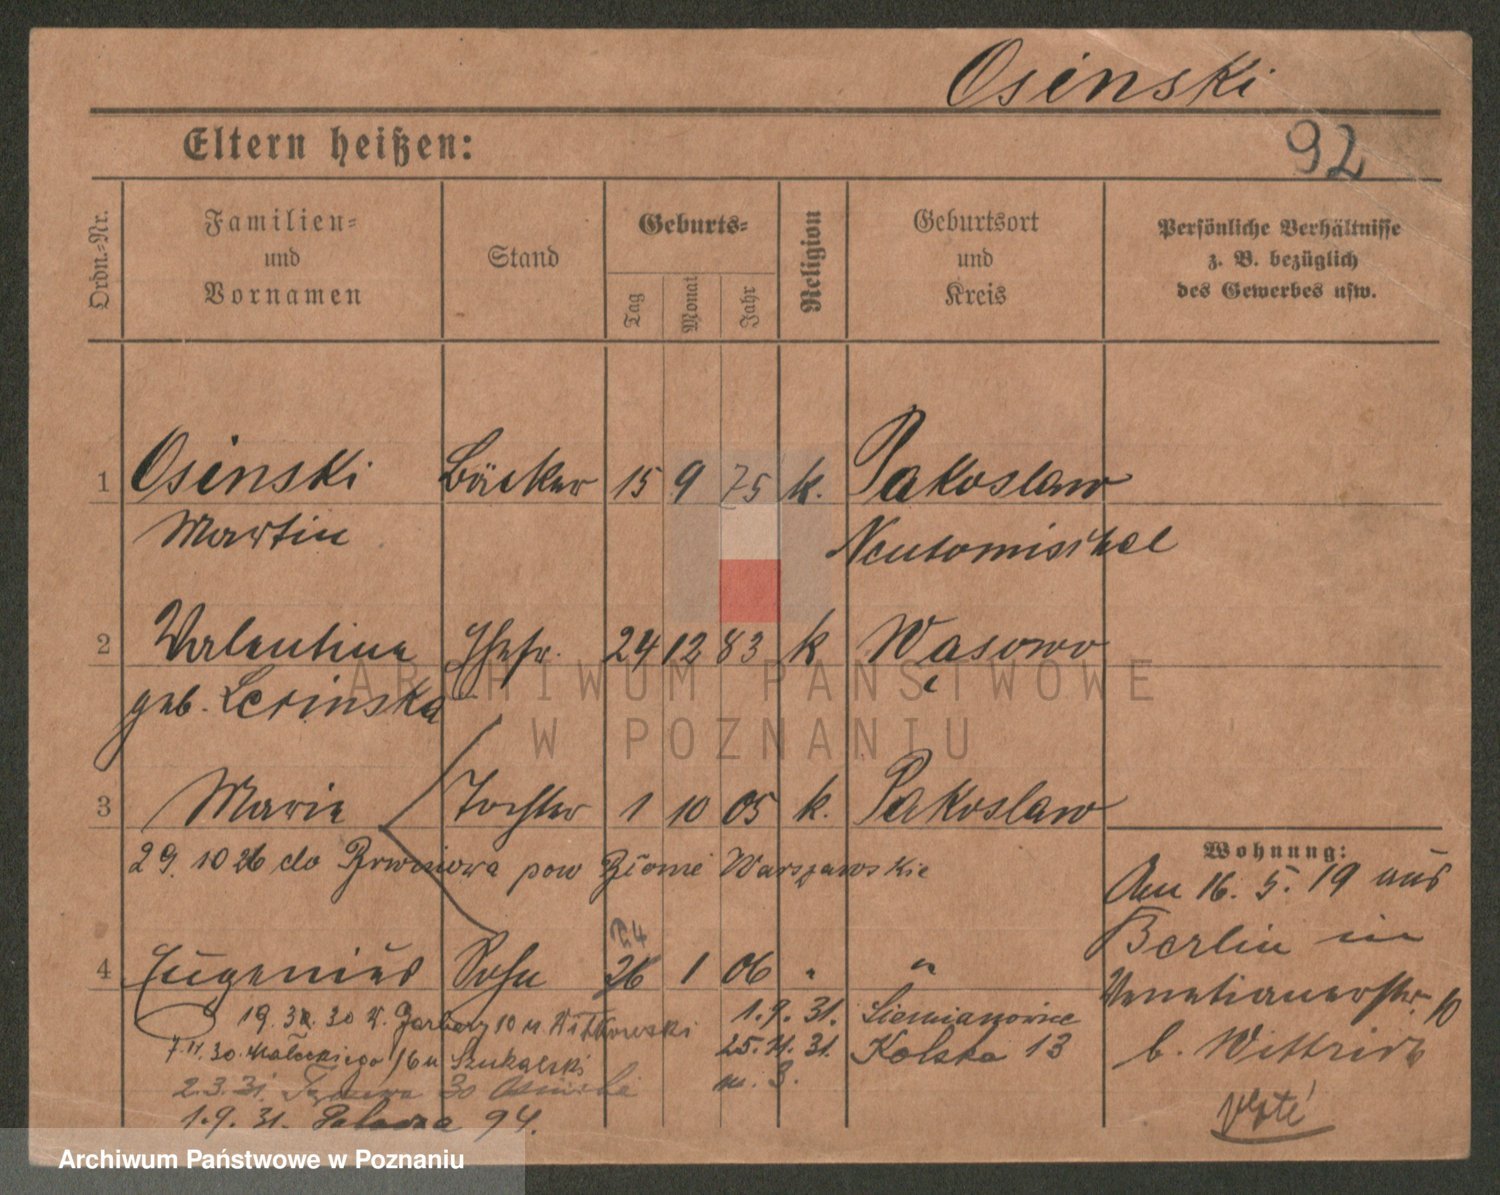 Osinski
92
Eltern heißen:
Ordn.-Nr.
Familien-
und
Vornamen
Stand
Geburts-
Tag
Monat
Jahr
Religion
Geburtsort
und
Kreis
Persönliche Verhältnisse
z. B. bezüglich
des Gewerbes usw.
1 Osinski Bäcker 15 9 75 k. Pakoslaw
Martin Neutomischel
2 Valentine Ehefr. 24 12 83 k Wąsowo
geb.
3 Marie Tochter 1 10 05 k. Pakoslaw
29. 10 26 do pow Błonie Warszawskie
Wohnung:
Am 16. 5. 19 aus
Berlin in
Venetianerstr. 10
b.
24
4 Eugenius Sohn 26 1 06 " "
19. 30 W. Garbary 10 u. Witkowski
1. 9. 31. Siemianowice
30. Małeckiego 16 u
25. 11. 31. Kolska 13
m. 3.
2. 3. 31. 30
1. 9. 31. Palacza 94.
ARCHIWUM PAŃSTWOWE
W POZNANIU
Archiwum Państwowe w Poznaniu